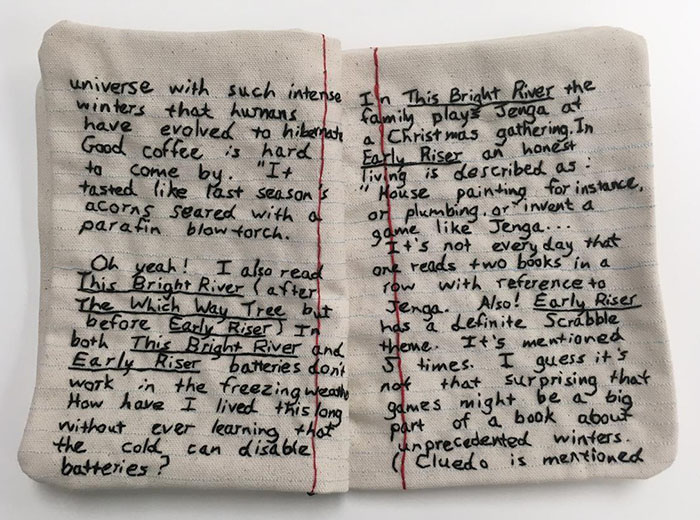 universe with such intense
winters that humans
have evolved to hibernate
Good coffee is hard
to come by. "It
tasted like last season's
acorns seared with a
parafin blow torch.
Oh yeah! I also read
This Bright River (after
The Which Way Tree but
before Early Riser) In
both This Bright River and
Early Riser batteries don't
work in the freezing weather
How have I lived this long
without ever learning that
the cold can disable
batteries?
In This Bright River the
family plays Jenga at
a Christmas gathering. In
Early Riser an honest
living is described as:
"House painting for instance,
or plumbing, or invent a
game like Jenga...
It's not every day that
one reads two books in a
row with reference to
Jenga. Also! Early Riser
has a definite Scrabble
theme. It's mentioned
5 times. I guess it's
not that surprising that
games might be a big
part of a book about
unprecedented winters.
(Cluedo is mentioned